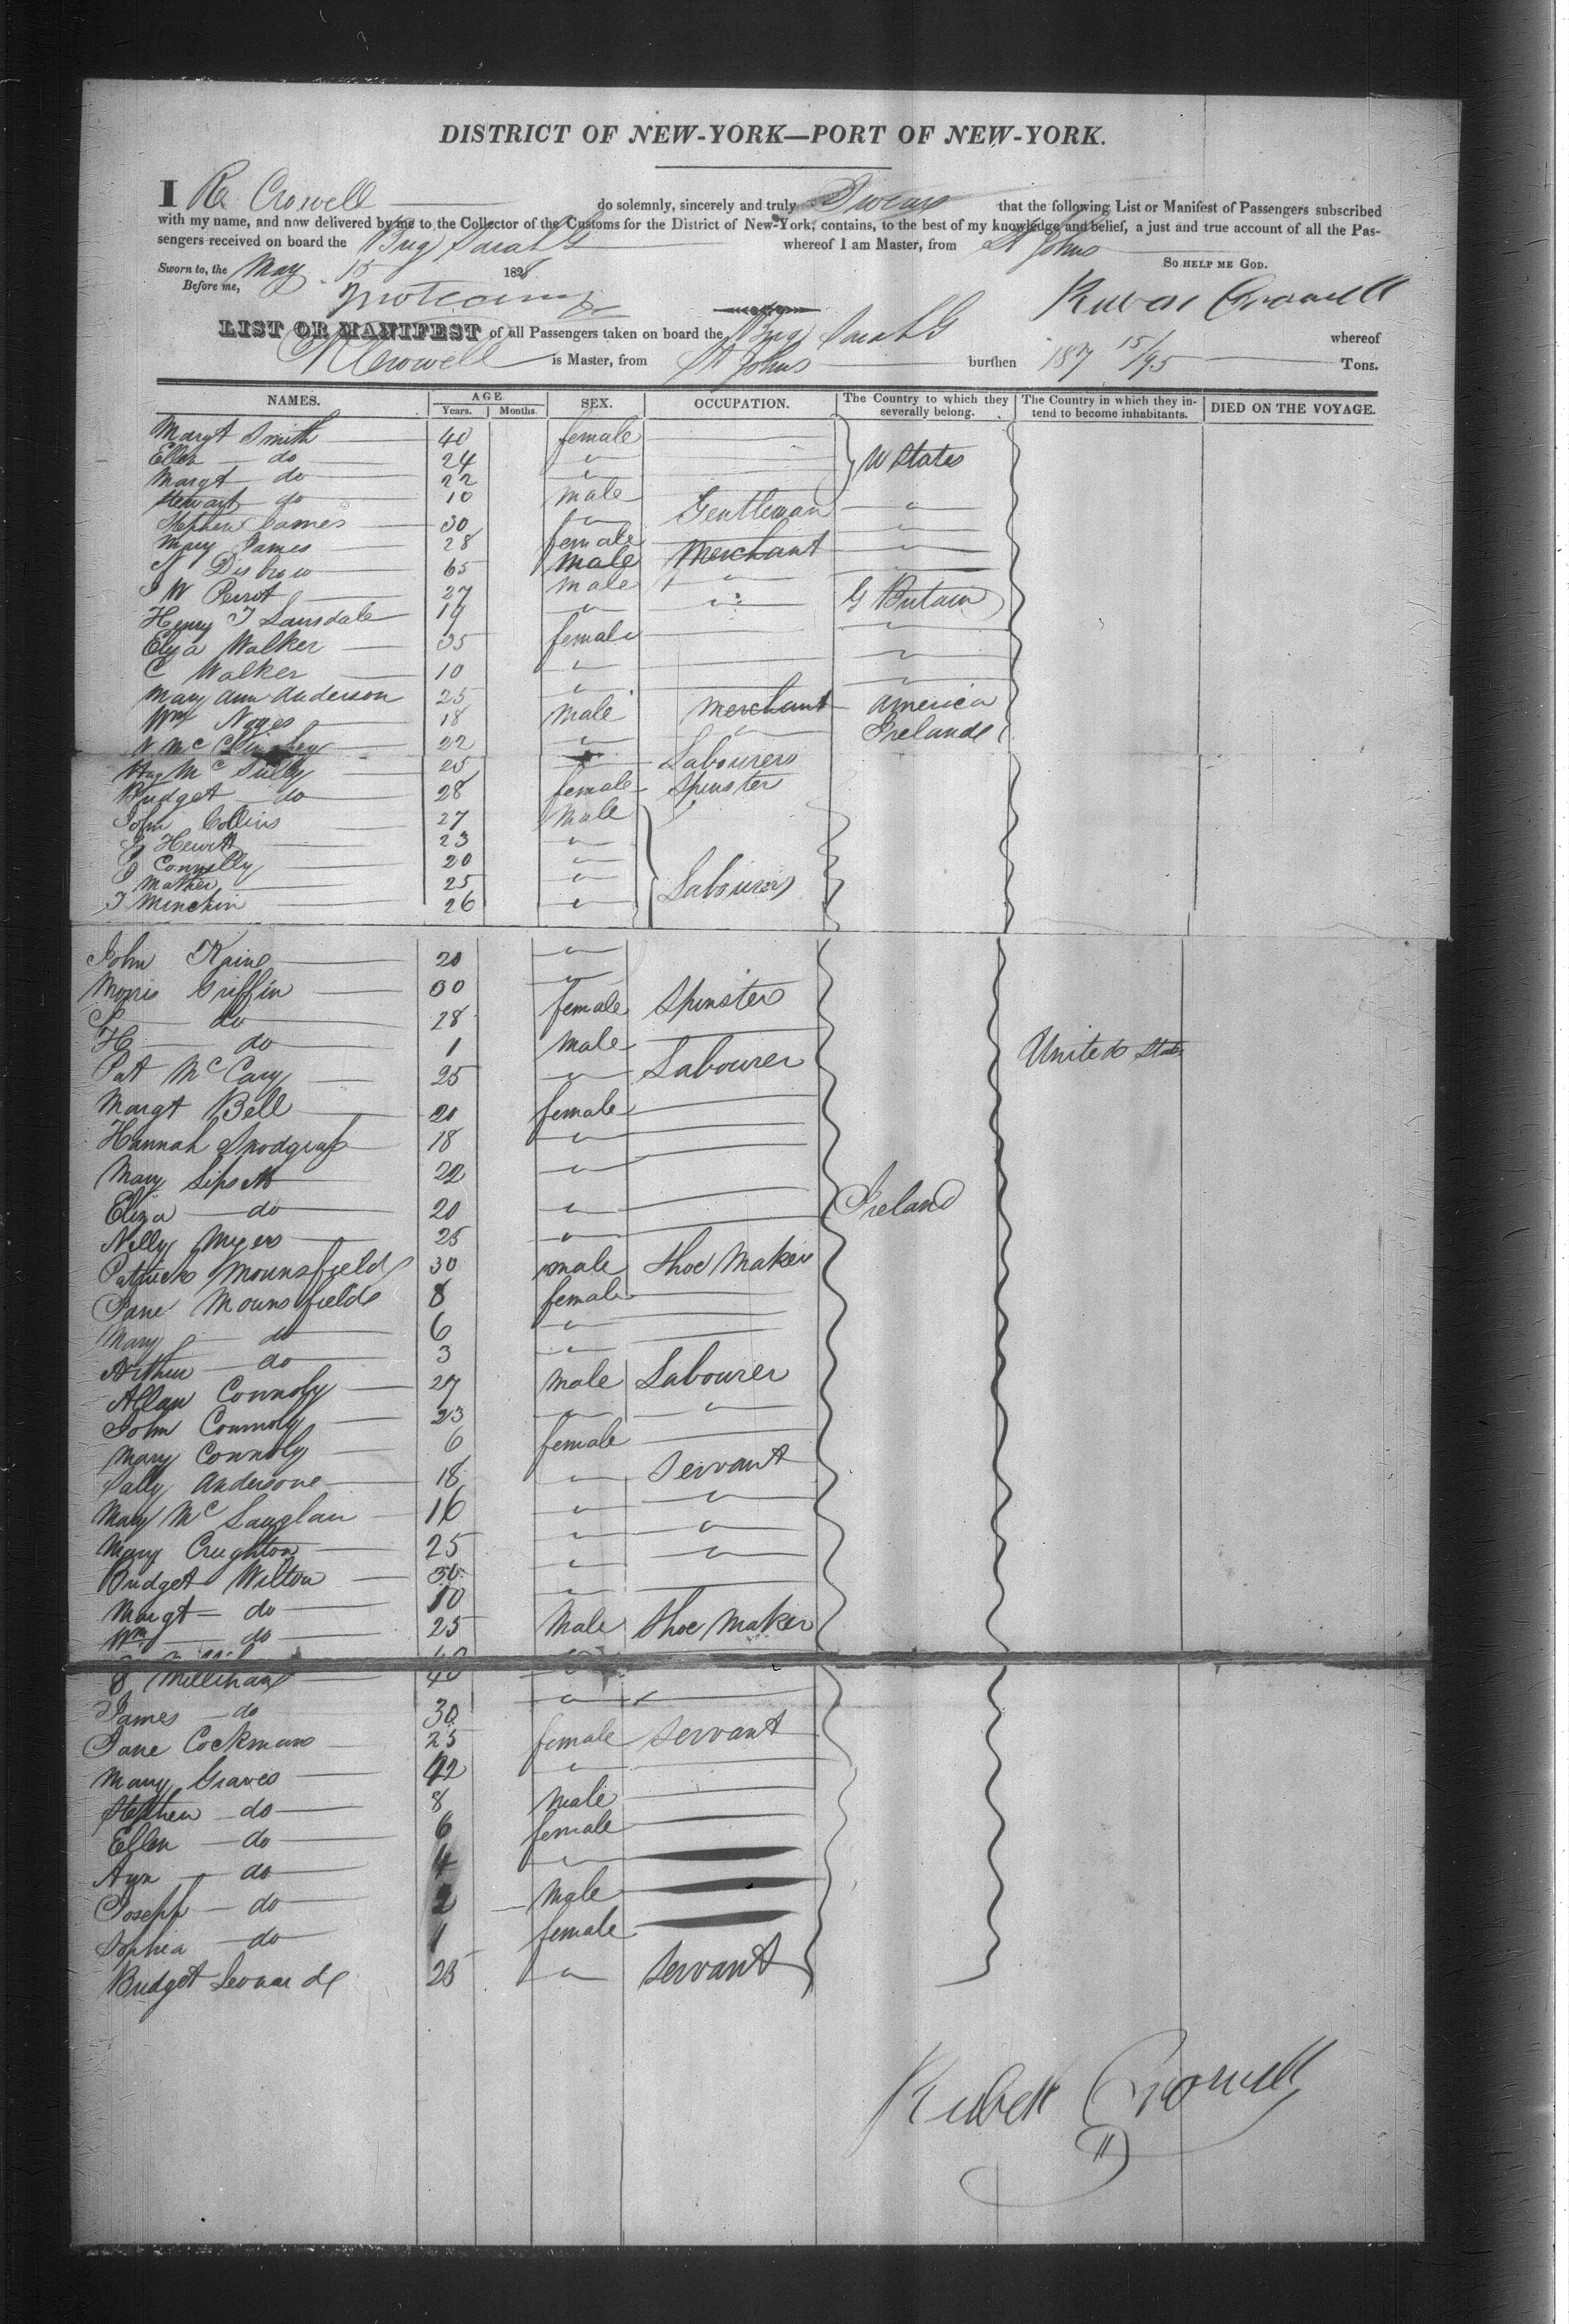 DISTRICT OF NEW-YORK—PORT OF NEW-YORK.
I R Crowell do solemnly, sincerely and truly Swear that the following List or Manifest of Passengers subscribed
with my name, and now delivered by me to the Collector of the Customs for the District of New-York, contains, to the best of my knowledge and belief, a just and true account of all the Pas-
sengers received on board the Brig Sarah G whereof I am Master, from St Johns
So help me God.
Sworn to, the May 15 1828.
Before me,
Crowell
LIST OR MANIFEST of all Passengers taken on board the Brig Sarah G whereof
R Crowell is Master, from St Johns burthen 187 15/95 Tons.
NAMES. AGE Years. Months. SEX. OCCUPATION. The Country to which they severally belong. The Country in which they intend to become inhabitants. DIED ON THE VOYAGE.
Margt Smith 40 female
Ellen do 24 " U States
Margt do 22 "
Stewart do 10 male
Stephen James 30 " Gentleman "
Mary James 28 female "
Disbrow 65 male Merchant "
W Perrot 27 male "
Henry J Lansdale 19 " " G Britain
Eliza Walker 35 female "
C Walker 10 " "
Mary Ann Anderson 25 " "
Wm Noyes 18 male merchant America
22 " " Ireland
Mc 25 Labourers
Bridget do 28 female Spinster
John Collins 27 Male
Hewitt 23 "
Connelly 20 "
Mather 25 " Labourers
J Minchin 26 "
John Kaine 20 "
Morris Griffin 30 "
do 28 female Spinster
H do 1 male
Pat McCary 25 " Labourer United States
Margt Bell 21 female
Hannah Snodgrass 18 "
Mary Lipsett 22 "
Eliza do 20 " Ireland
Nelly Myers 25 "
Patrick Mounsfield 30 male Shoe Maker
Jane Mounsfield 8 female
Mary do 6 "
Arthur do 3 "
Allan Connoly 27 male Labourer
John Connoly 23 " "
Mary Connoly 6 female
Sally Andersone 18 " Servant
Mary McLauglan 16 " "
Mary Creighton 25 " "
Bridget Wilton 30 " "
Margt do 10 "
Wm do 25 Male Shoe Maker
Millihan 40 "
James do 30 "
Jane Cockman 25 female Servant
Mary Graves 42 "
Stephen do 8 male
Ellen do 6 female
Ayn do 4 "
Joseph do 2 Male
Sophia do 1 female
Bridget Leonard 25 " Servant
Crowell